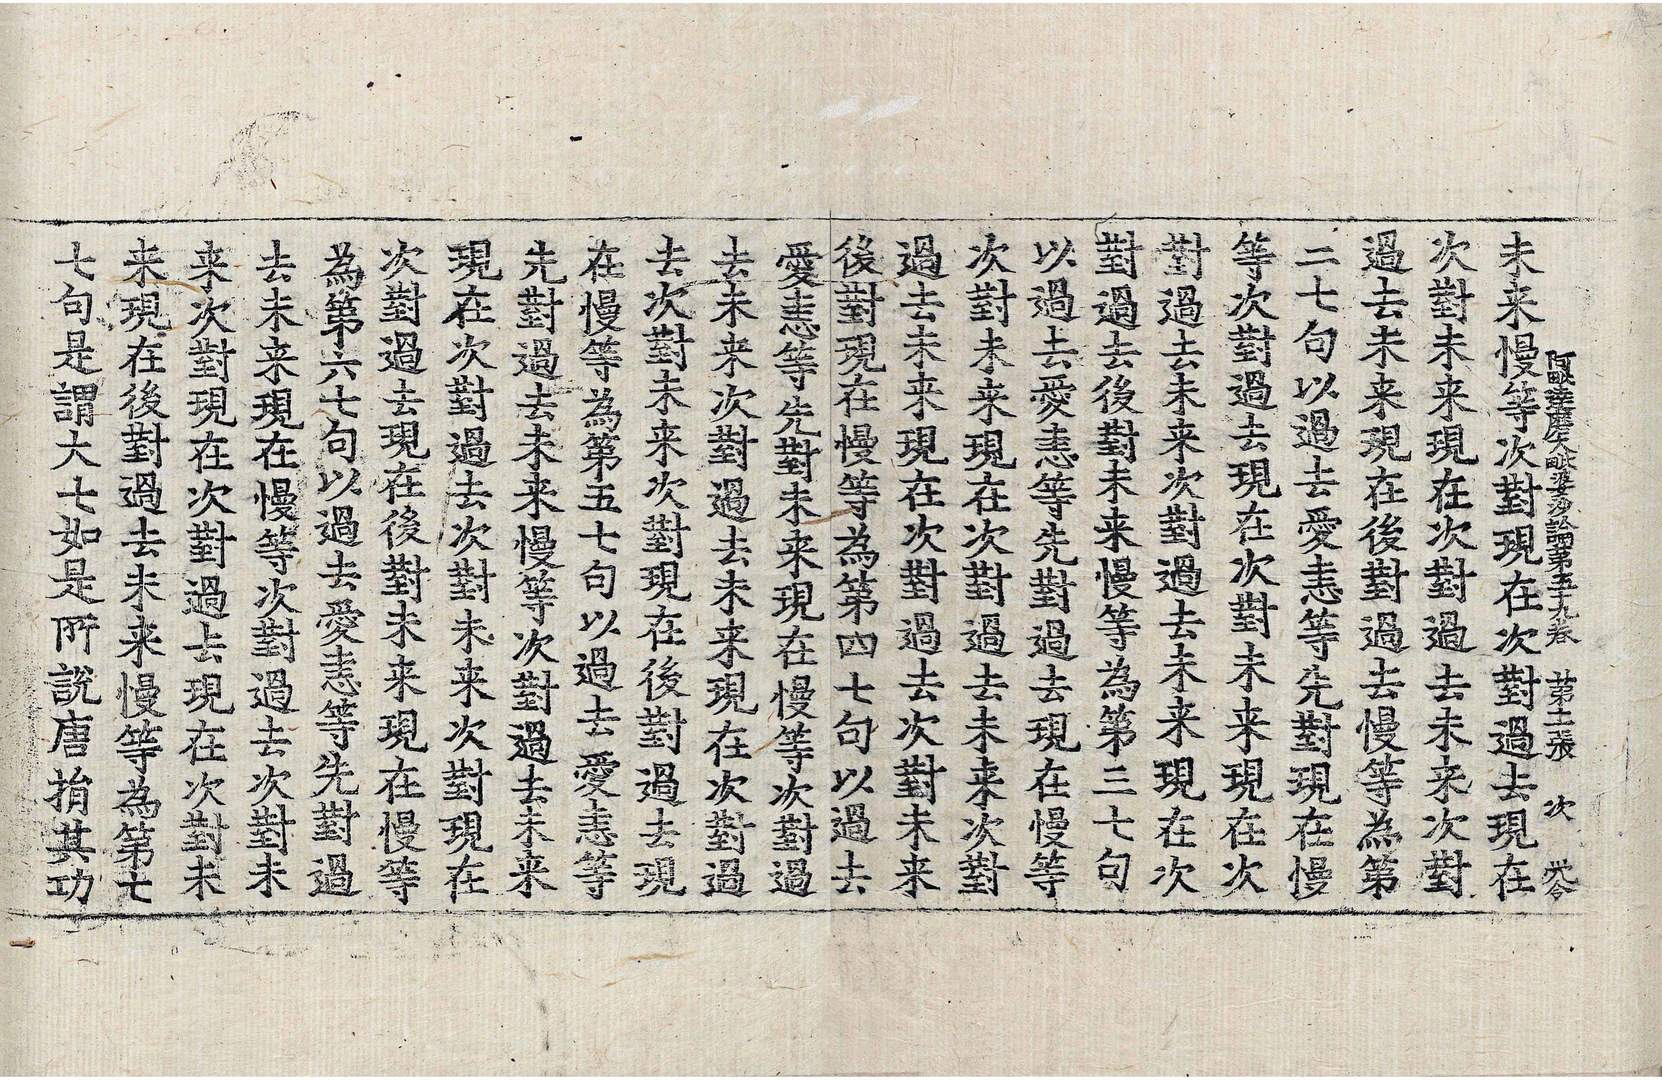 阿毗達磨大毗婆沙論第五十九卷　第十二張　次
未来慢等次對現在次對過去現在
次對未来現在次對過去未来次對
過去未来現在後對過去慢等為第
二七句以過去愛恚等先對現在慢
等次對過去現在次對未来現在次
對過去未来次對過去未来現在次
對過去後對未来慢等為第三七句
以過去愛恚等先對過去現在慢等
次對未来現在次對過去未来次對
過去未来現在次對過去次對未来
後對現在慢等為第四七句以過去
愛恚等先對未来現在慢等次對過
去未来次對過去未来現在次對過
去次對未来次對現在後對過去現
在慢等為第五七句以過去愛恚等
先對過去未来慢等次對過去未来
現在次對過去次對未来次對現在
次對過去現在後對未来現在慢等
為第六七句以過去愛恚等先對過
去未来現在慢等次對過去次對未
来次對現在次對過去現在次對未
来現在後對過去未来慢等為第七
七句是謂大七如是所說唐捐其功